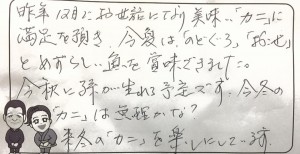 昨年12月にお世話になり美味しい「カニ」に
満足を頂き、今夏は、「のどぐろ」「おこぜ」
とめずらしい魚を賞味できました。
今秋に孫が生れる予定です。今冬の
「カニ」は無理かな?
来冬の「カニ」を楽しみにしています。